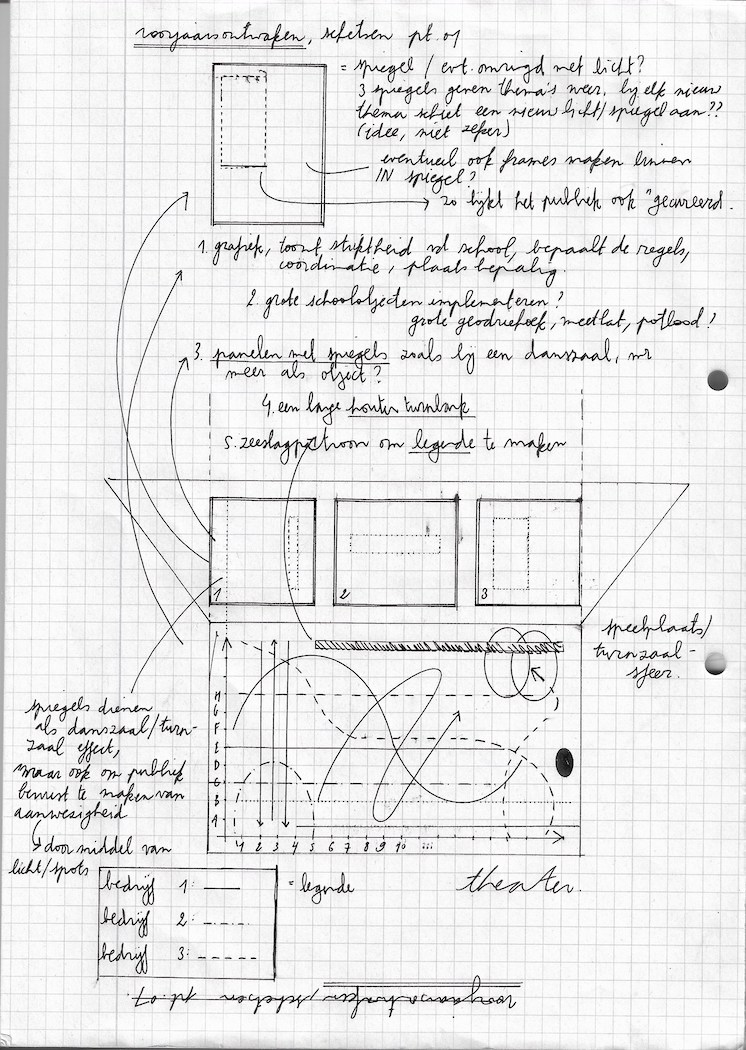 voorjaarsontwaken, schetsen pt. 01
= spiegel / evt. omringd met licht?
3 spiegels geven thema's weer, bij elk nieuw
thema schiet een nieuw licht/spiegel aan??
(idee, niet zeker)
eventueel ook frames maken binnen
IN spiegel?
→ zo lijkt het publiek ook "gecreëerd.
1. grafiek, toont striktheid vd school, bepaalt de regels,
coördinatie, plaats bepaling.
2. grote schoolobjecten implementeren?
grote geodriehoek, meetlat, potlood?
3. panelen met spiegels zoals bij een danszaal, mr
meer als object?
4. een lange houten turnbank
5. zeeslagpatroon om legende te maken
1 2 3
speelplaats/
turnzaal-
sfeer.
spiegels dienen
als danszaal/turn-
zaal effect,
maar ook om publiek
bewust te maken van
aanwezigheid
↳ door middel van
licht/spots
H
G
F
E
D
C
B
A
1 2 3 4 5 6 7 8 9 10 ...
bedrijf 1:
bedrijf 2:
bedrijf 3:
= legende
theater.
voorjaarsontwaken, schetsen pt. 01